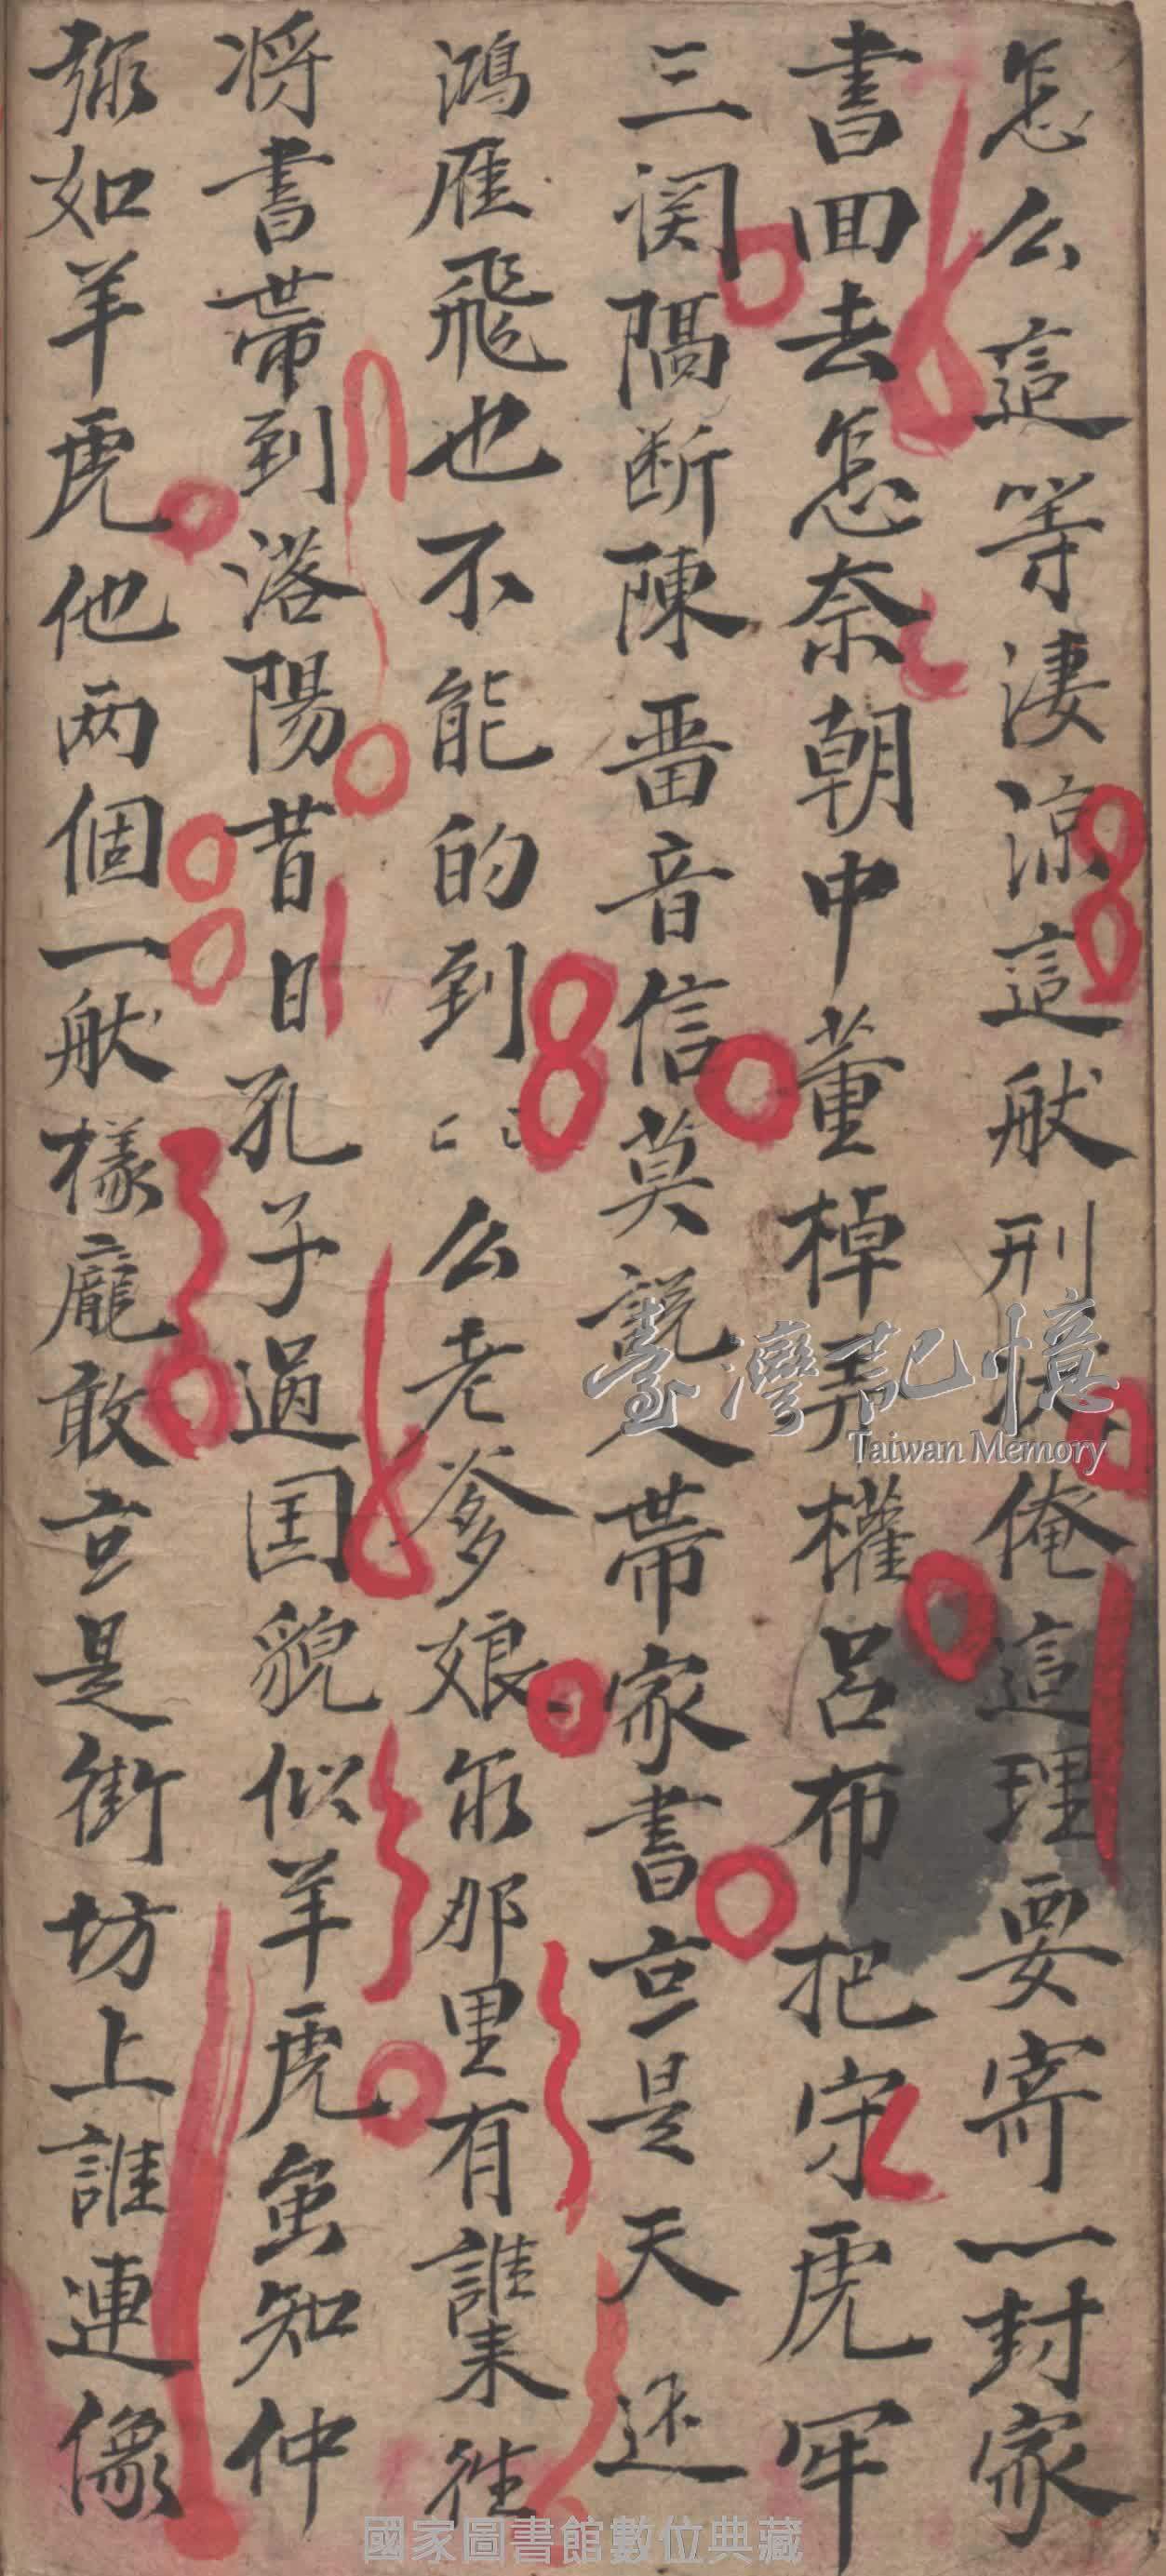 怎么這等淒涼這般刑狀俺這理要寄一封家
書回去怎奈朝中董棹弄權呂布把守虎牢
三関隔断陳畱音信莫説人帶家書就是天邊
鴻雁飛也不能的到〻〻么老爹娘你那里有誰来往
将書帶到洛陽昔日孔子過国貌似羊虎虽知仲
弥如羊虎他两個一般樣龐敢就是街坊上誰連像
臺灣記憶
Taiwan Memory
國家圖書館數位典藏